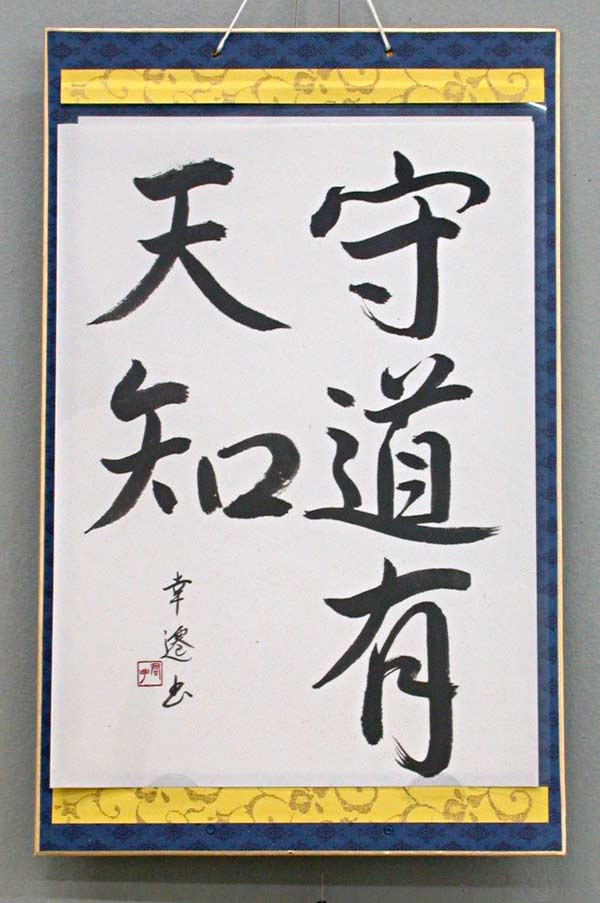 守道有
天知
幸遷書